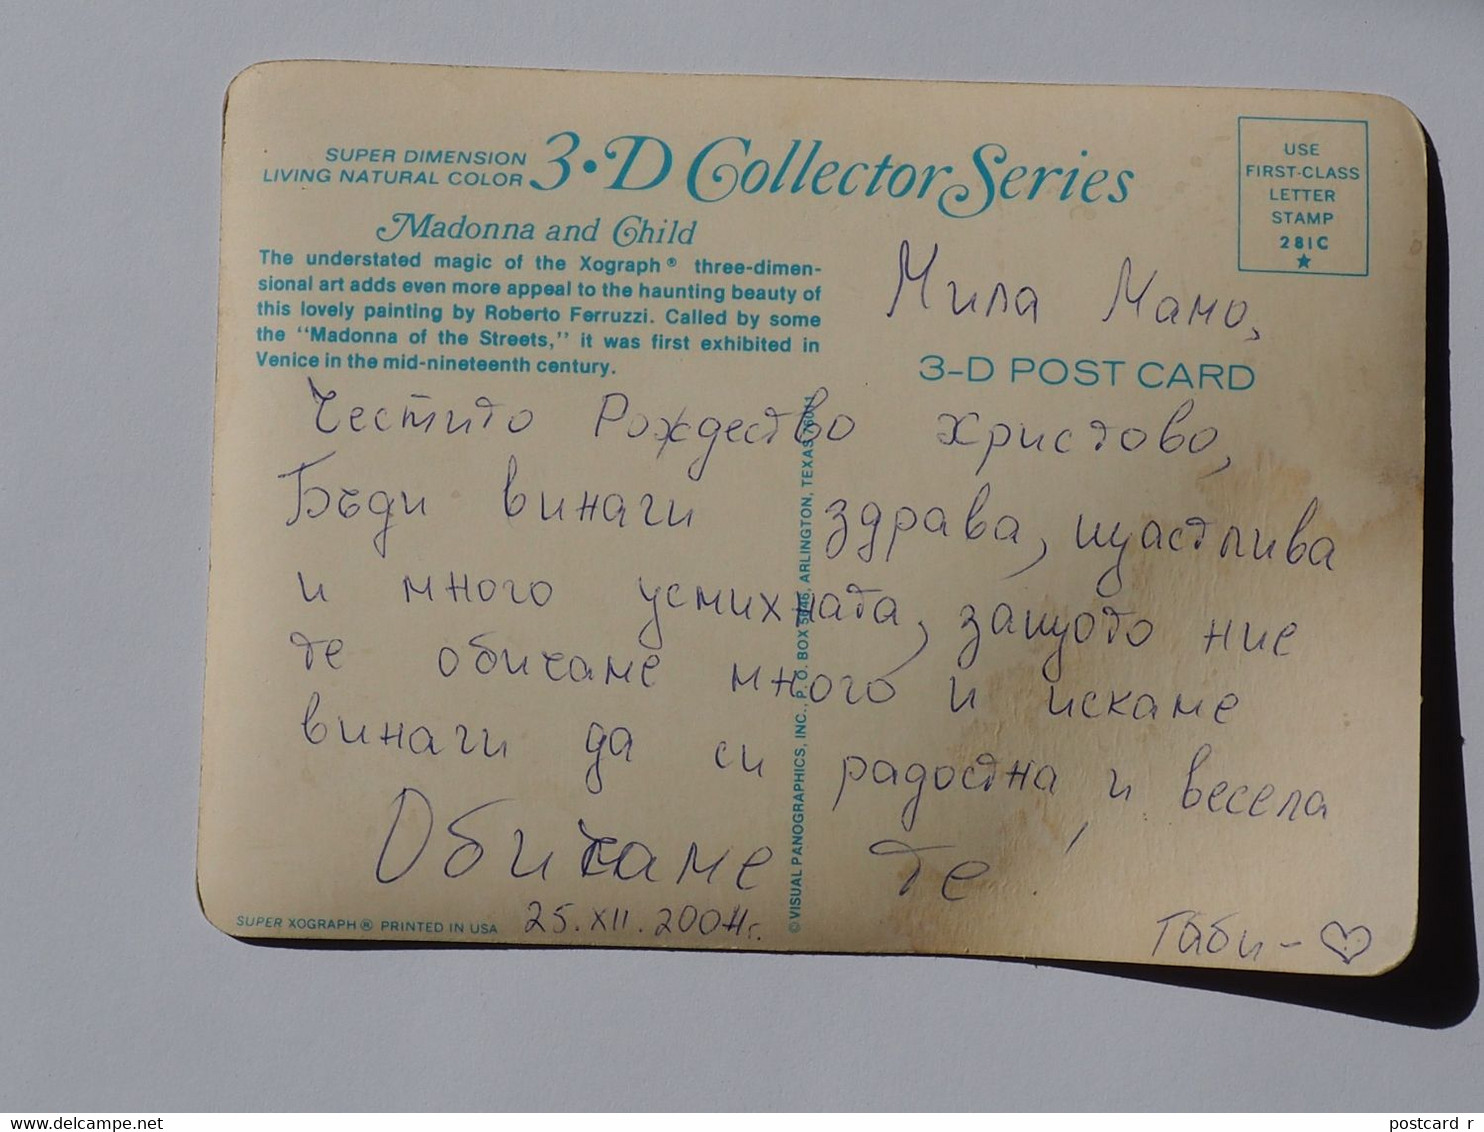 SUPER DIMENSION
LIVING NATURAL COLOR
3·D Collector Series
Madonna and Child
The understated magic of the Xograph® three-dimen-
sional art adds even more appeal to the haunting beauty of
this lovely painting by Roberto Ferruzzi. Called by some
the "Madonna of the Streets," it was first exhibited in
Venice in the mid-nineteenth century.
USE
FIRST-CLASS
LETTER
STAMP
281C
★
Мила Мамо,
3-D POST CARD
Честито Рождество Христово,
Бъди винаги здрава, щастлива
и много усмихната, защото ние
те обичаме много и искаме
винаги да си радостна и весела
Обичаме те!
25.XII.2004г.
Габи - ♡
SUPER XOGRAPH® PRINTED IN USA
© VISUAL PANOGRAPHICS, INC., P. O. BOX 5646, ARLINGTON, TEXAS 76011
www.delcampe.net
postcard_r